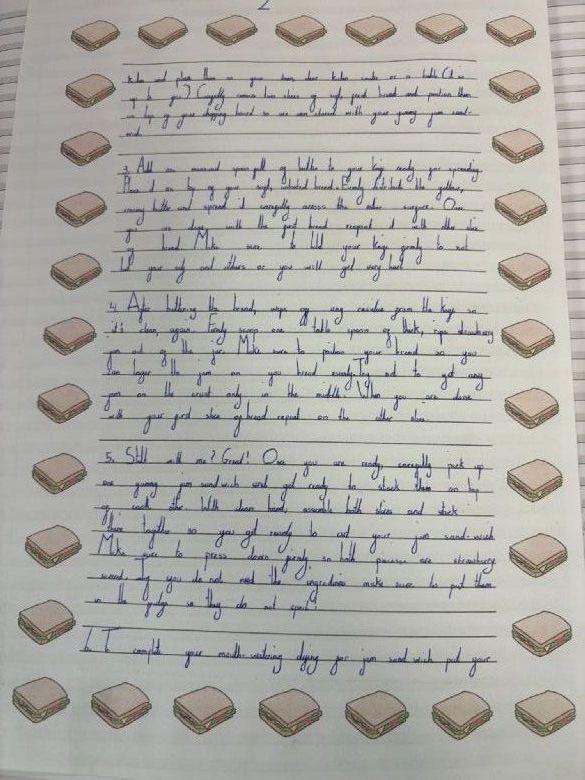 2
and place them on your clean, clear kitchen or a table (It is
up to you)? Carefully remove two slices of bread and position them
on top of your chopping board so we can start with your yummy jam sand-
wich.
3. Add an spoonfull of butter to your knife ready for spreading.
Place it on top of your bread. Firmly the yellow,
creamy butter and spread it carefully across the surface. Once
you are done with the first bread repeat it with other slice
of bread. Make sure to hold your knife firmly to not
hurt your self and others or you will get very hurt.
4. After buttering the bread, wipe off any residue from the knife so
it's clean, again. Firmly scoop one table spoon of thick, ripe strawberry
jam out of the jar. Make sure to position your bread so you
can layer the jam on you bread evenly. Try not to get any
jam on the crust only in the middle! When you are done
with your first slice of bread repeat on the other slice.
5. Still with me? Great! Once you are ready, carefully pick up
one yummy jam sandwich and get ready to stack them on top
of each other. With clean hands, assemble both slices and stack
them together so you get ready to cut your jam sand-wich
Make sure to press down firmly so both are strawberry
you do not need the ingredients make sure to put them
in the fridge so they do not spoil!
6. To complete your mouth-watering jam sandwich put your